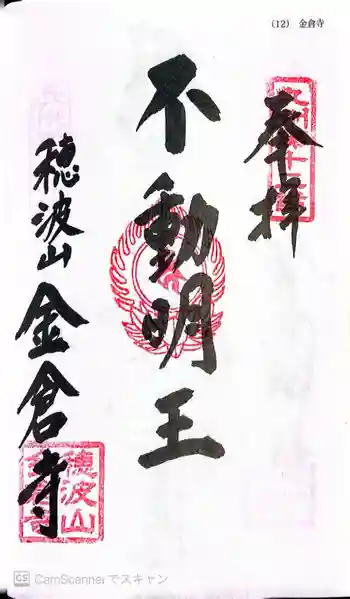 (12) 金倉寺
奉拝
不動明王
穂波山
金倉寺
穂波山
CS CamScannerでスキャン